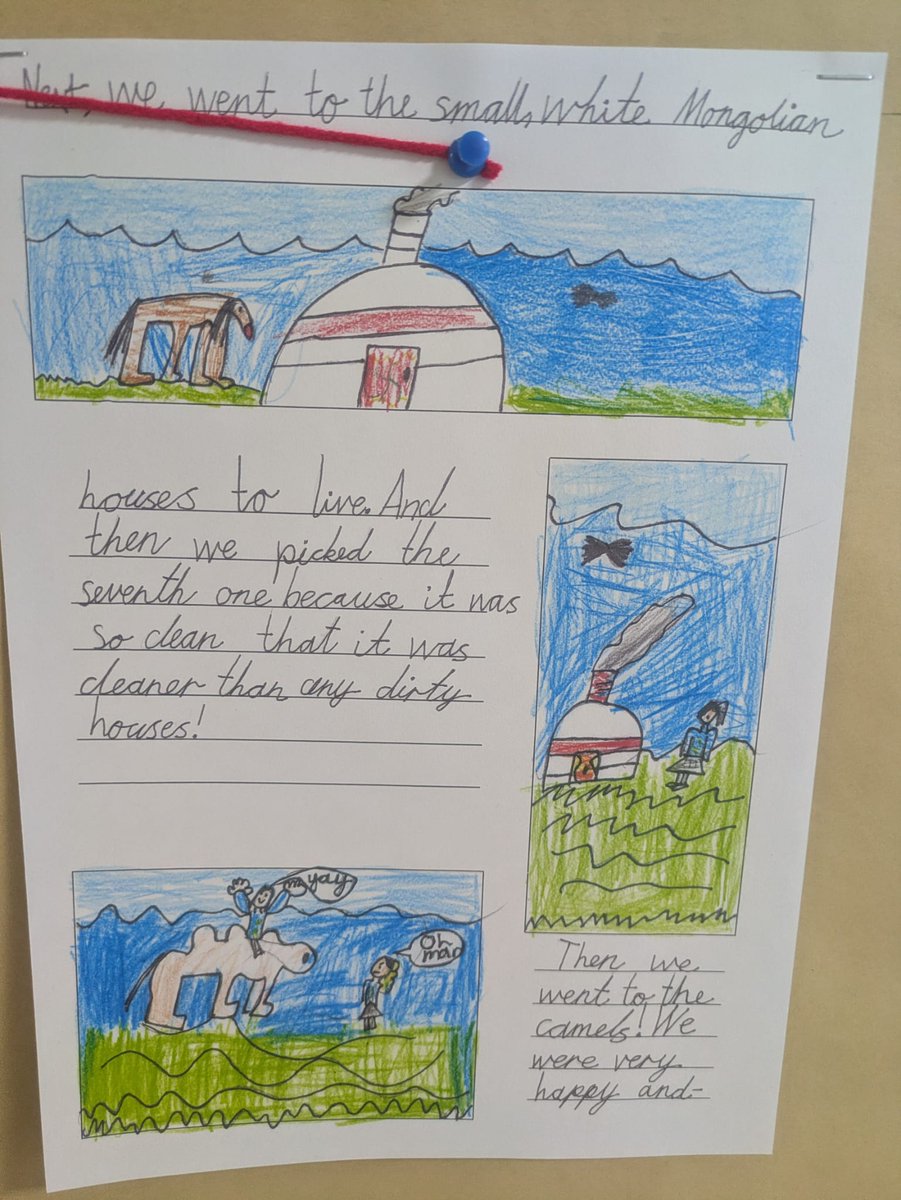 Next, we went to the small, white Mongolian
houses to live. And
then we picked the
seventh one because it was
so clean that it was
cleaner than any dirty
houses!
yay
Oh
man
Then we
went to the
camels! We
were very
happy and-